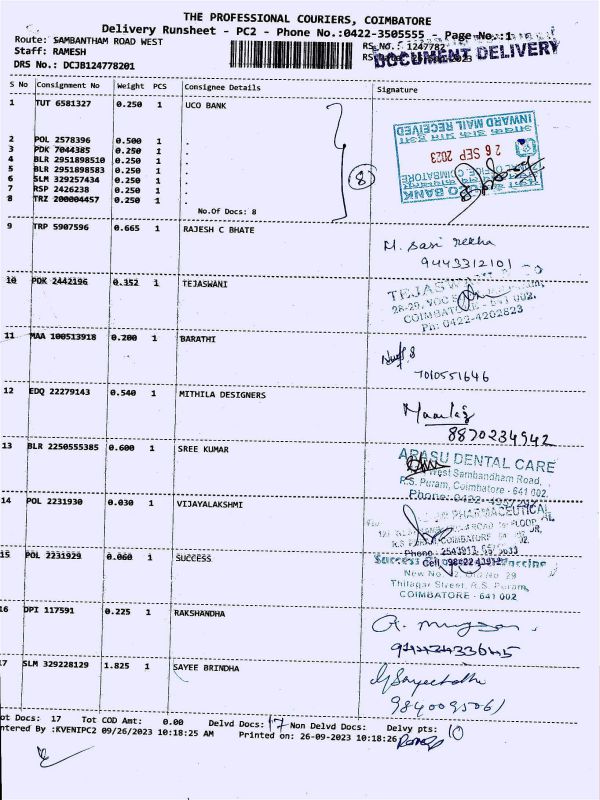 THE PROFESSIONAL COURIERS, COIMBATORE
Delivery Runsheet - PC2 - Phone No.:0422-3505555 - Page No.:1
Route: SAMBANTHAM ROAD WEST
RS No.: 1247782
Staff: RAMESH
DOCUMENT DELIVERY
DRS No.: DCJB124778201
S No Consignment No Weight PCS Consignee Details Signature
1 TUT 6581327 0.250 1 UCO BANK
INWARD MAIL RECEIVED
26 SEP 2023
COIMBATORE
BANK
2 POL 2578396 0.500 1 .
3 PDK 7044385 0.250 1 .
4 BLR 2951898510 0.250 1 .
5 BLR 2951898583 0.250 1 .
6 SLM 329257434 0.250 1 .
7 RSP 2426238 0.250 1 .
8 TRZ 200004457 0.250 1 .
8
No.Of Docs: 8
9 TRP 5907596 0.665 1 RAJESH C BHATE
M. Sasi rekha
9443312101
10 PDK 2442196 0.352 1 TEJASWANI
26-29, VOC
COIMBATORE - 641 002.
Ph: 0422-4202823
11 MAA 100513918 0.200 1 BARATHI
7010551646
12 EDQ 22279143 0.540 1 MITHILA DESIGNERS
8870234942
13 BLR 2250555385 0.600 1 SREE KUMAR
ARASU DENTAL CARE
West Sambandham Road,
R.S. Puram, Coimbatore - 641 002.
Phone: 0422
14 POL 2231930 0.030 1 VIJAYALAKSHMI
PHARMACEUTICAL
COIMBATORE
Phone
15 POL 2231929 0.060 1 SUCCESS
Success Vaccine
New No. 2, Old No. 29
Thilagar Street, R.S. Puram,
COIMBATORE - 641 002
16 DPI 117591 0.225 1 RAKSHANDHA
17 SLM 329228129 1.825 1 SAYEE BRINDHA
ot Docs: 17 Tot COD Amt: 0.00 Delvd Docs: 17 Non Delvd Docs: Delvy pts: 10
ntered By :KVENIPC2 09/26/2023 10:18:25 AM Printed on: 26-09-2023 10:18:26